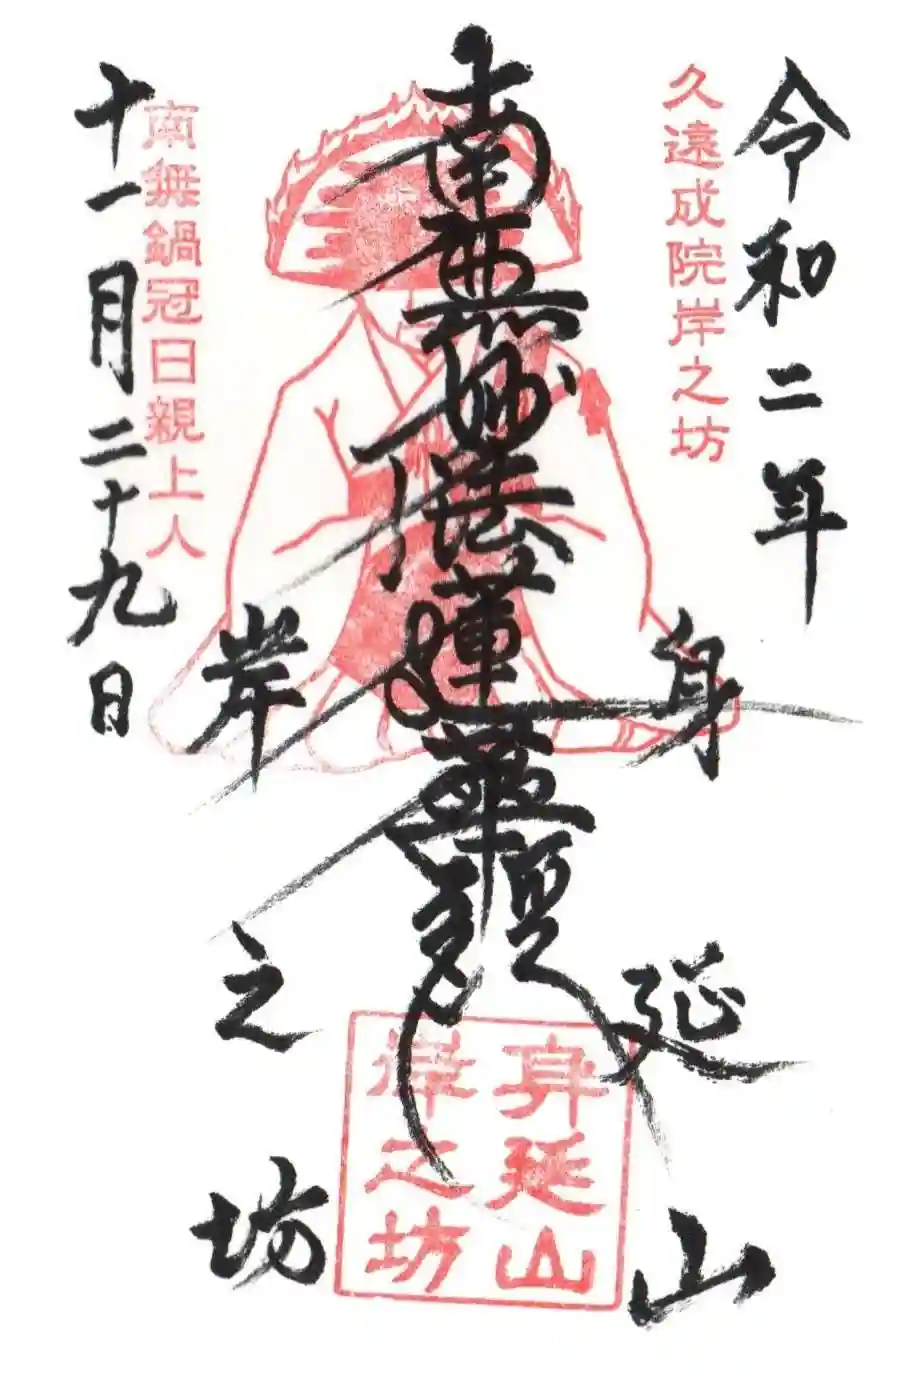 令和二年
久遠成院岸之坊
身延山
南無妙法蓮華経
岸之坊
南無鍋冠日親上人
十一月二十九日
身延山
岸之坊